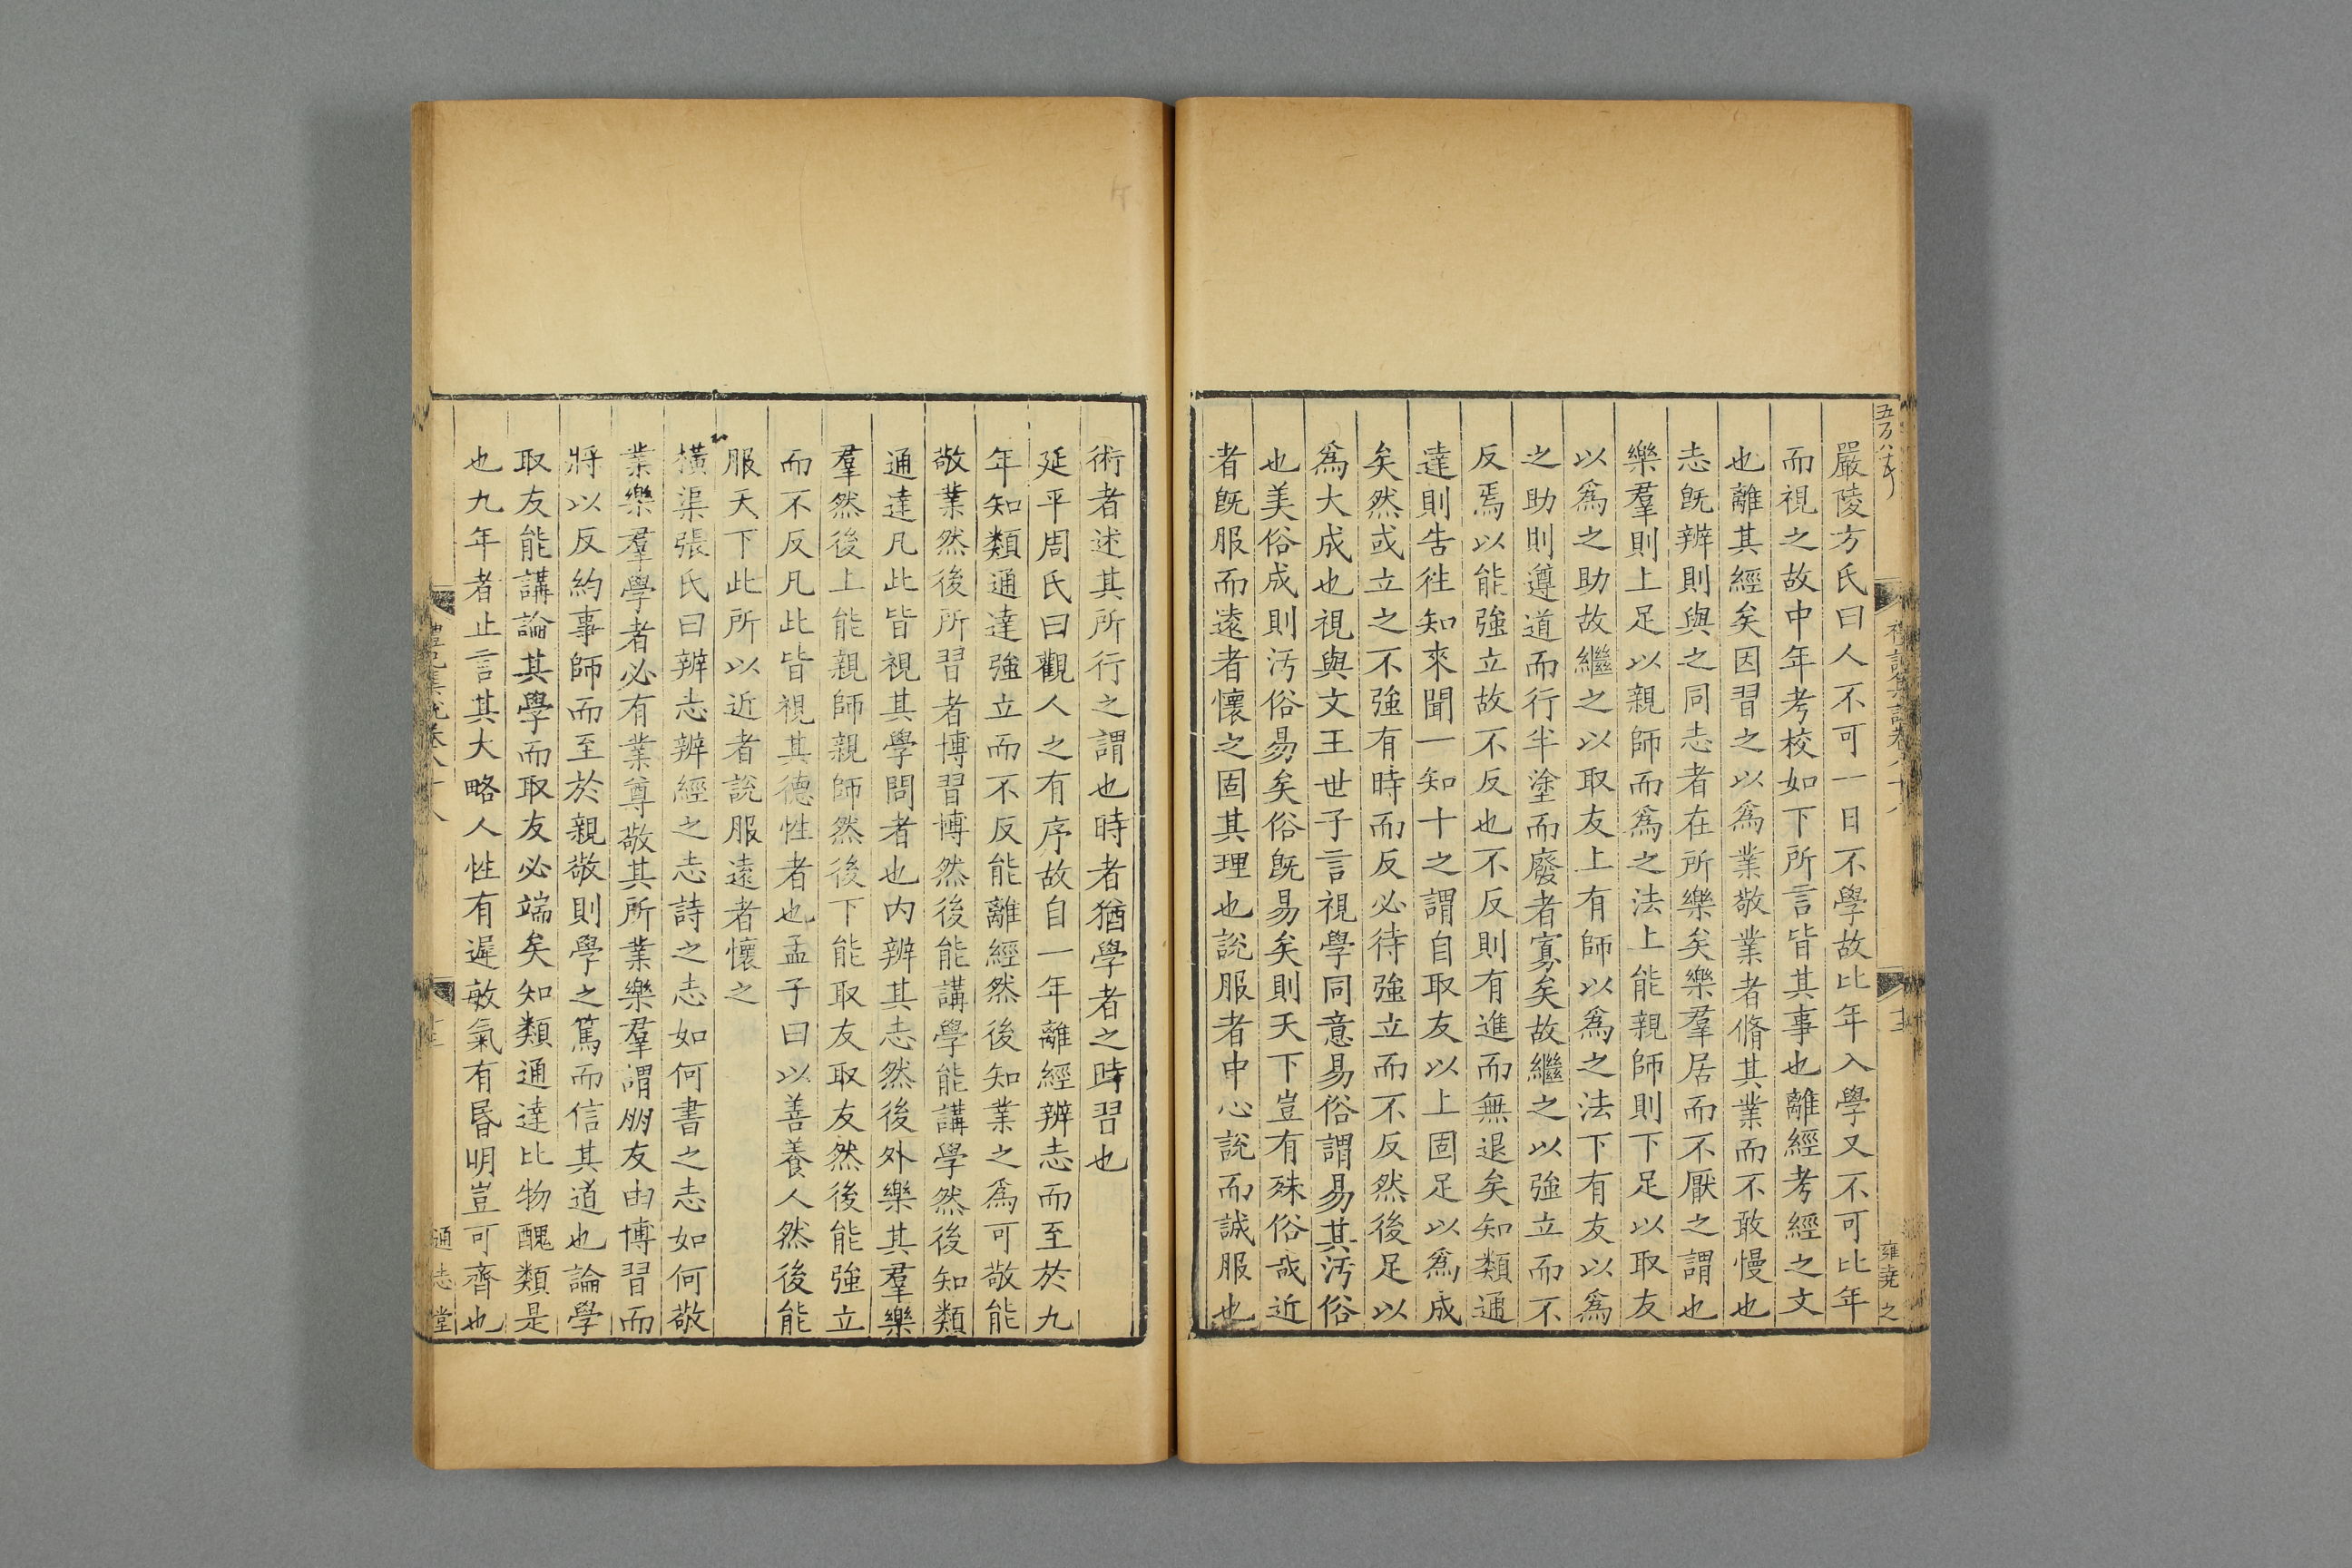 嚴陵方氏曰人不可一日不學故比年入學又不可比年
而視之故中年考校如下所言皆其事也離經考經之文
也離其經矣因習之以爲業敬業者脩其業而不敢慢也
志旣辨則與之同志者在所樂矣樂羣居而不厭之謂也
樂羣則上足以親師而爲之法上能親師則下足以取友
以爲之助故繼之以取友上有師以爲之法下有友以爲
之助則遵道而行半塗而廢者寡矣故繼之以強立而不
反焉以能強立故不反也不反則有進而無退矣知類通
達則告徃知來聞一知十之謂自取友以上固足以爲成
矣然或立之不強有時而反必待強立而不反然後足以
爲大成也視與文王世子言視學同意易俗謂易其汚俗
也美俗成則汚俗易矣俗旣易矣則天下豈有殊俗哉近
者旣服而遠者懷之固其理也說服者中心說而誠服也
術者述其所行之謂也時者猶學者之時習也
延平周氏曰觀人之有序故自一年離經辨志而至於九
年知類通達強立而不反能離經然後知業之爲可敬能
敬業然後所習者博習博然後能講學能講學然後知類
通達凡此皆視其學問者也内辨其志然後外樂其羣樂
羣然後上能親師親師然後下能取友取友然後能強立
而不反凡此皆視其德性者也孟子曰以善養人然後能
服天下此所以近者說服遠者懷之
橫渠張氏曰辨志辨經之志詩之志如何書之志如何敬
業樂羣學者必有業尊敬其所業樂羣謂朋友由博習而
將以反約事師而至於親敬則學之篤而信其道也論學
取友能講論其學而取友必端矣知類通達比物醜類是
也九年者止言其大略人性有遲敏氣有昬明豈可齊也
通志堂